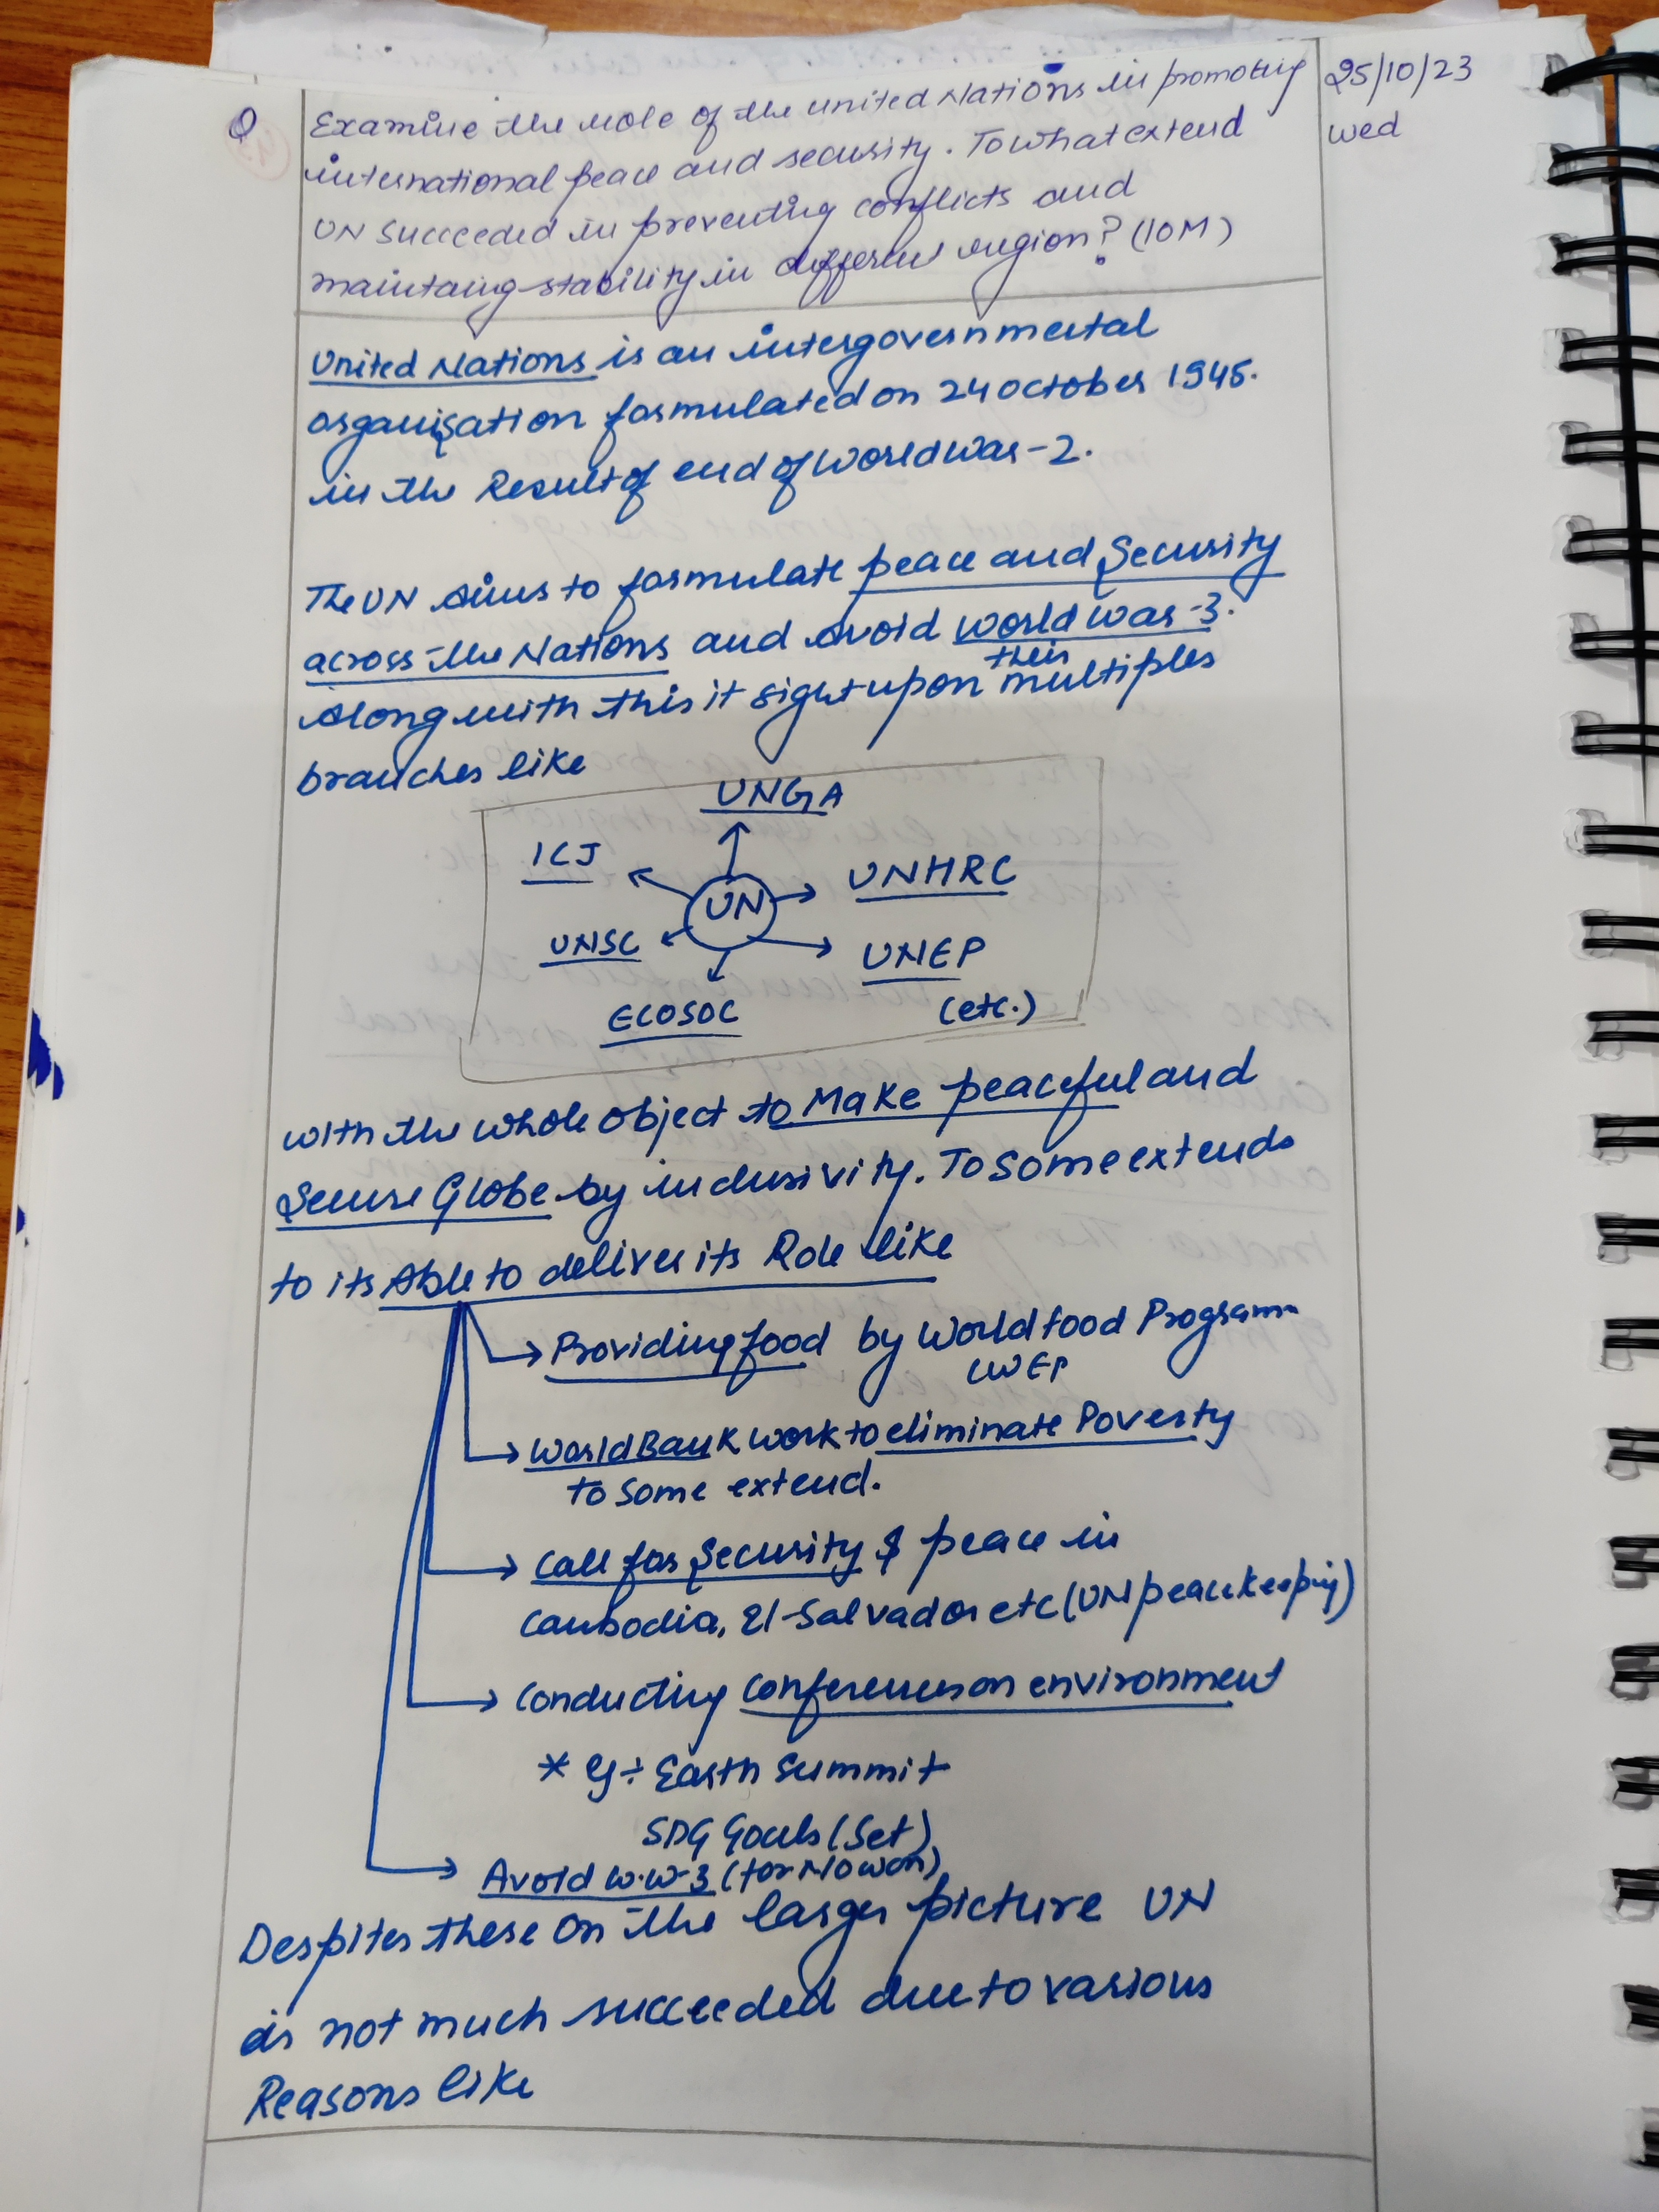 Q Examine the role of the united Nations in promoting
international peace and security. To what extend
UN succeeded in preventing conflicts and
maintaing stability in different region? (10M)
25/10/23
wed
United Nations is an intergovernmental
organisation formulated on 24 october 1945.
in the Result of end of world war-2.
The UN Aims to formulate peace and Security
across the Nations and Avoid world war-3.
Along with this it sight upon their multiples
branches like
UNGA
ICJ
UNHRC
UN
UNSC
UNEP
ECOSOC
(etc.)
with the whole object to Make peaceful and
Secure Globe by inclusivity. To some extends
to its Able to deliver its Role like
→ Providing food by World food Program
WFP
→ World Bank work to eliminate Poverty
to some extend.
→ Call for Security & peace in
Cambodia, El-Salvador etc (UN peacekeeping)
→ Conducting Conferences on environment
* eg ÷ Earth Summit
SDG Goals (Set)
→ Avoid W.W-3 (for Now)
Despites these On the larger picture UN
is not much succeeded due to various
Reasons like